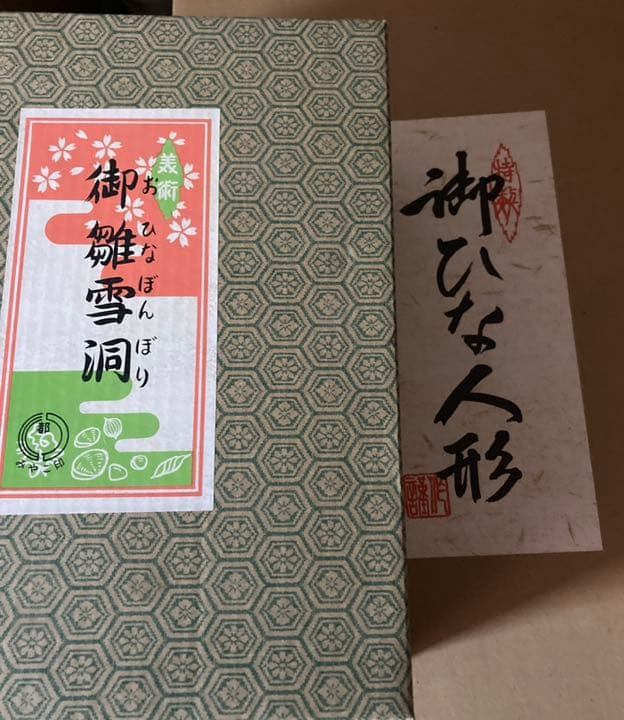 特製
御ひな人形
美術
御雛雪洞
おひなぼんぼり
都
みやこ印